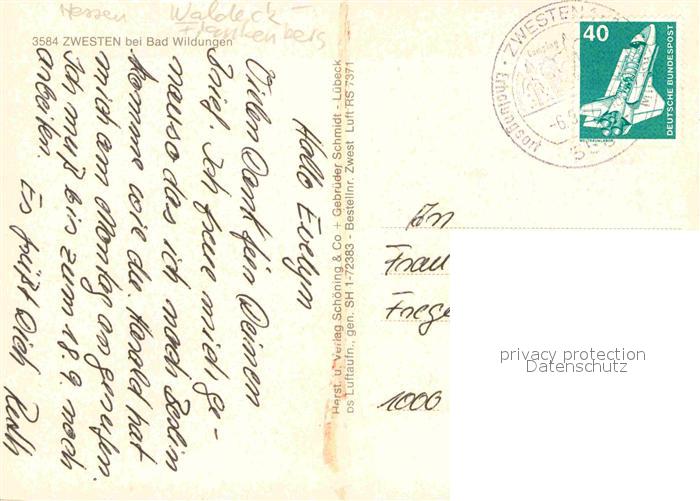 Hessen Waldeck-
Frankenberg
3584 ZWESTEN bei Bad Wildungen
Hallo Evelyn
Vielen Dank für Deinen
Brief. Ich freue mich ge-
nauso das ich nach Berlin
komme wie du. Harald hat
mich am Montag angerufen.
Ich muß bis zum 18.9. noch
arbeiten.
Es grüßt Dich
Herst. u. Verlag Schöning & Co + Gebrüder Schmidt - Lübeck
os Luftaufn., gen. SH 1-72383 - Bestellnr. Zwest Luft RS 7371
ZWESTEN
40
DEUTSCHE BUNDESPOST
WELTRAUMLABOR
An
Frau
1000
privacy protection
Datenschutz